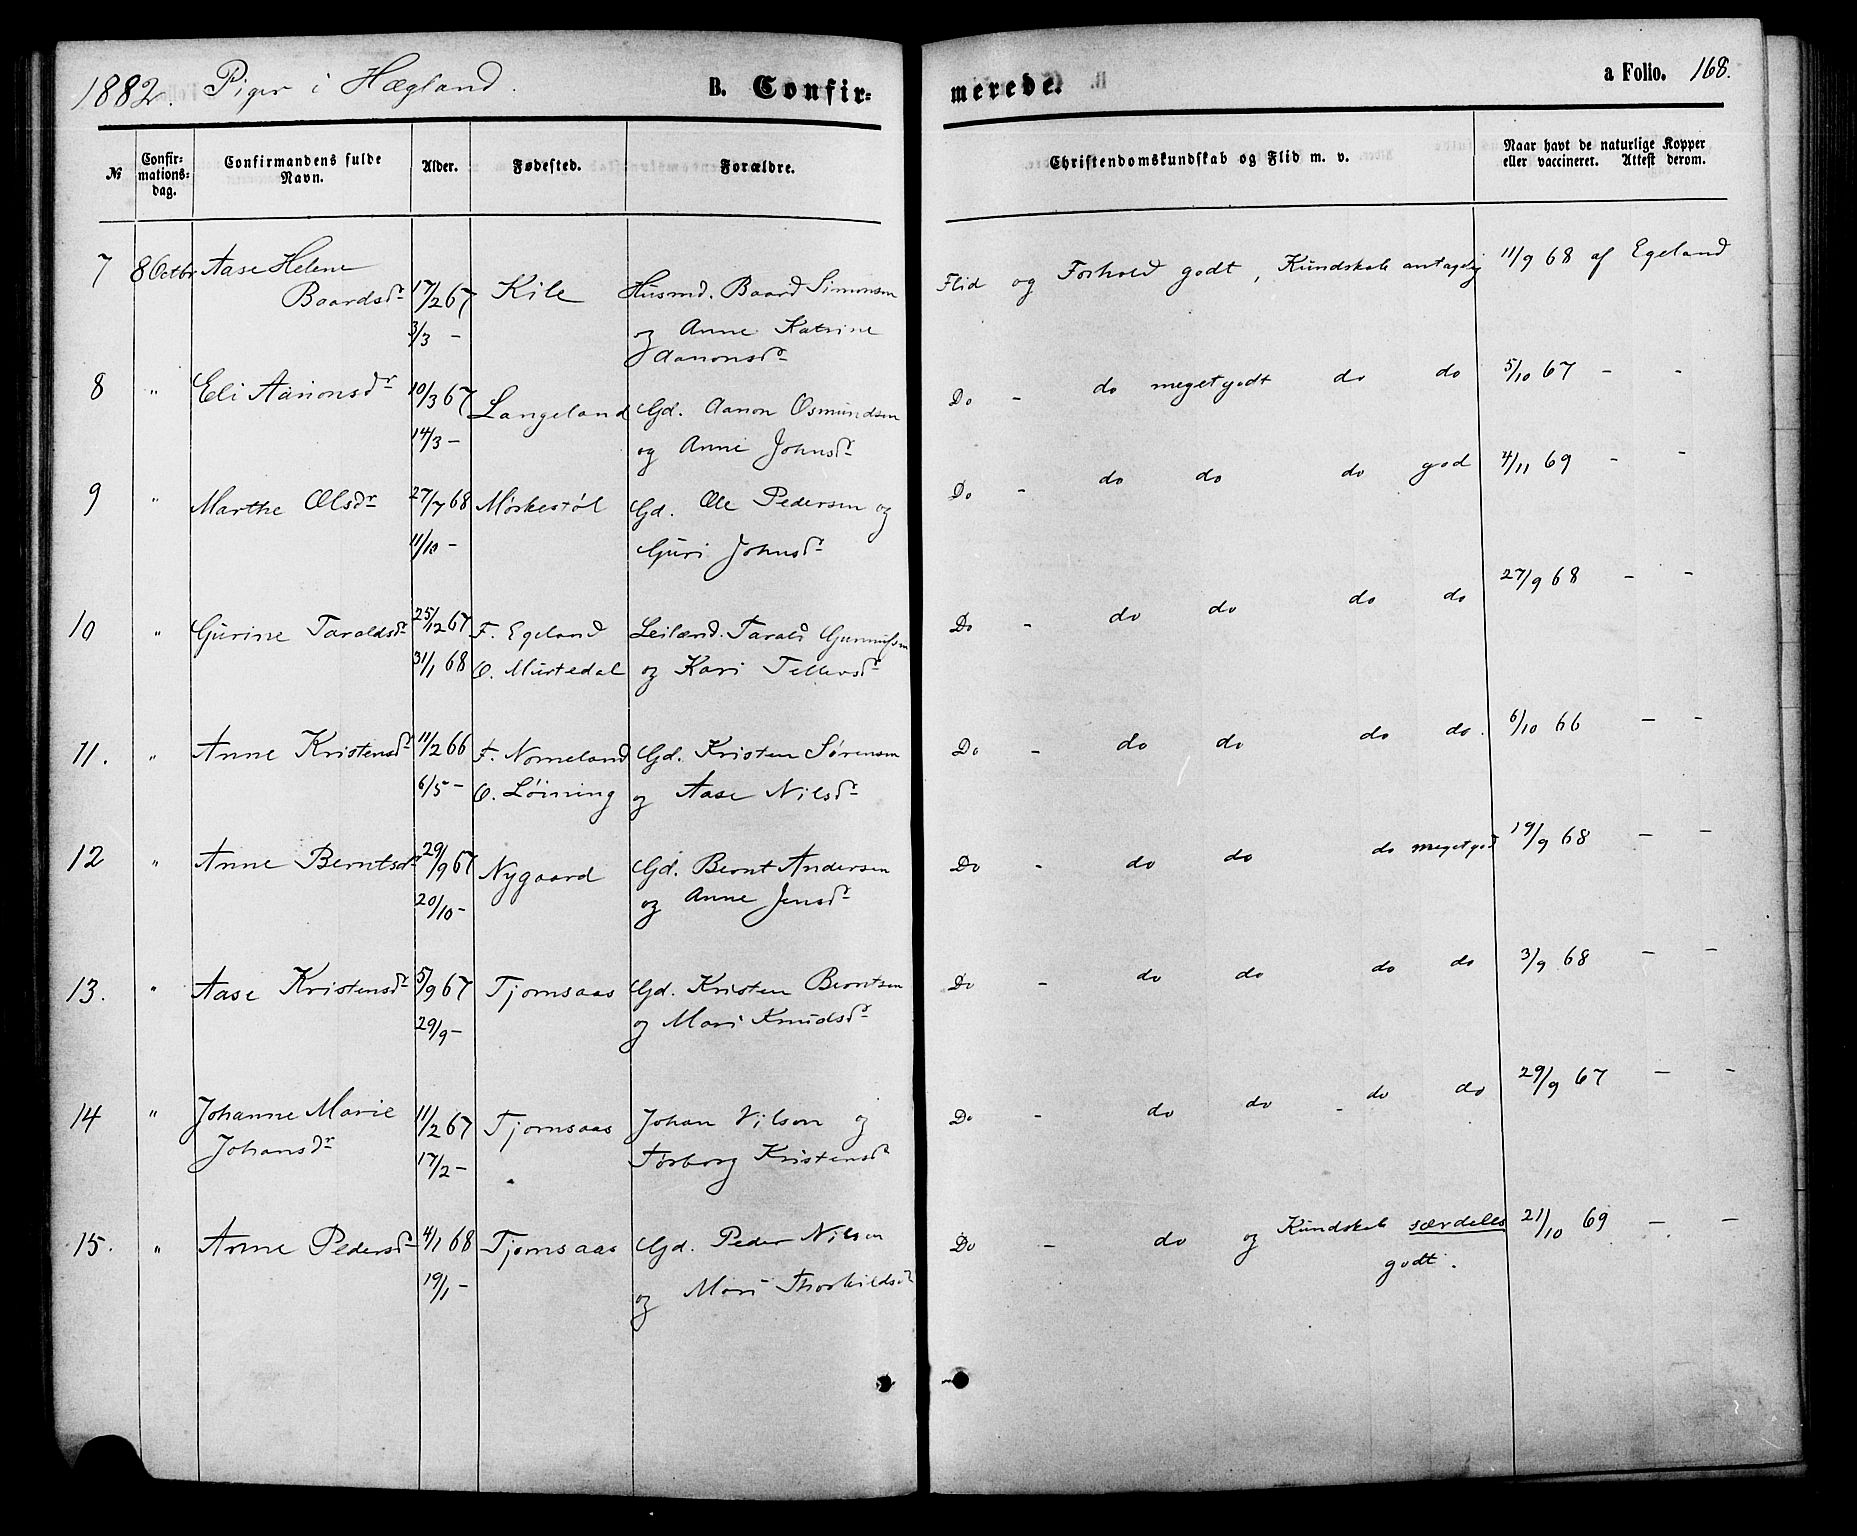 1882. Piger i Hægland.
B. Confir-
merede.
a Folio. 168.
№
Confir-
mations-
dag.
Confirmandens fulde
Navn.
Alder.
Fødested.
Forældre.
Christendomskundskab og Flid m. v.
Naar havt de naturlige Kopper
eller vaccineret. Attest derom.
7 8 Octbr Aase Helene
Baardsdr 17/2 67 Kile Husmd. Baard Simonsen
3/3 - og Anne Katrine
Aanonsdr
Flid og Forhold godt, Kundskab antagelig 11/9 68 af Egeland
8 " Eli Aanonsdr 10/3 67 Langeland Gd. Aanon Osmundsen
14/3 - og Anne Johnsdr
Do - do megetgodt do do 5/10 67 - -
9 " Marthe Olsdr 27/7 68 Mørkestøl Gd. Ole Pedersen og
11/10 - Guri Johnsdr
Do - do do do god 4/11 69 - -
10 " Gurine Taraldsdr 25/12 67 F. Egeland Leilænd. Tarald Gunnufsen
31/1 68 O. Murtedal og Kari Tellevsdr
Do - do do do do 27/9 68 - -
11. " Anne Kristensdr 11/2 66 F. Nomeland Gd. Kristen Sørensen
6/5 - O. Løining og Aase Nilsdr
Do - do do do do. 6/10 66 - -
12 " Anne Berntsdr 29/9 67 Nygaard Gd. Bernt Andersen
20/10 - og Anne Jensdr
Do - do do do megetgod 19/9 68 - -
13. " Aase Kristensdr 5/9 67 Tjomsaas Gd. Kristen Berntsen
29/9 - og Mari Knudsdr
Do - do do do do 3/9 68 - -
14 " Johanne Marie 11/2 67 Tjomsaas Johan Nilson og
Johansdr 17/2 - Torborg Kristensdr
Do - do do - do do 29/9 67 - -
15. " Anne Pedersdr 4/1 68 Tjomsaas Gd. Peder Nilson
19/1 - og Mari Thorkildsdr
Do - do og Kundskab særdeles 21/10 69 - -
godt.